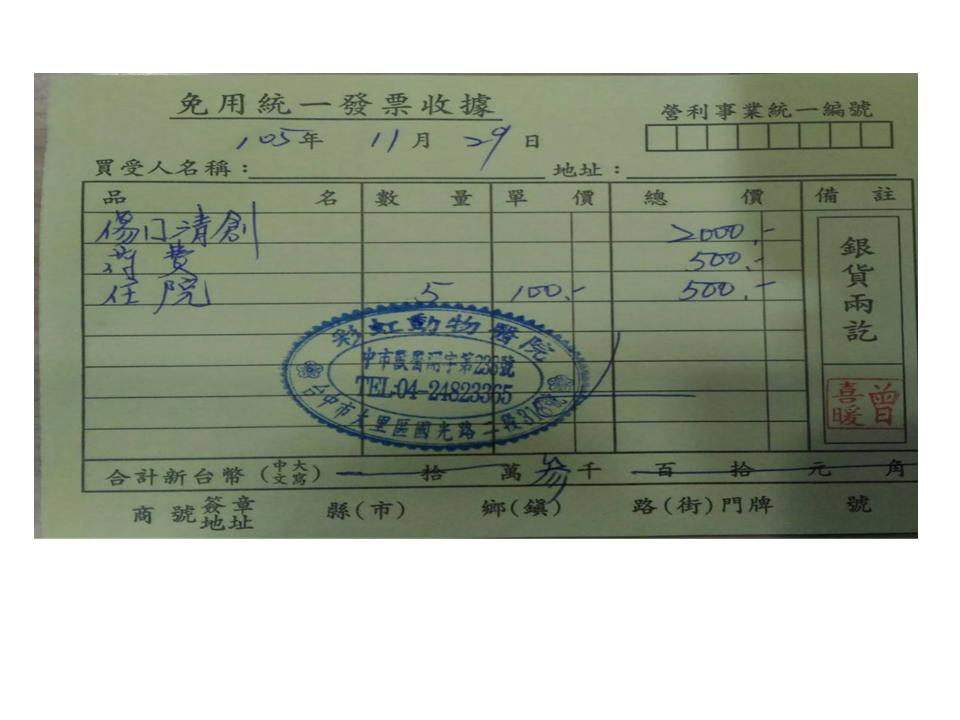 免用統一發票收據
營利事業統一編號
105年 11月 29日
買受人名稱： 地址：
品名 數量 單價 總價 備註
傷口清創 2000.-
費 500.-
住院 5 100.- 500.-
銀貨兩訖
彩虹動物醫院
TEL:04-24823365
台中市大里區國光路二段
曾喜暖
合計新台幣（中文大寫） 拾 萬 參千 百 拾 元 角
商號簽章地址 縣(市) 鄉(鎮) 路(街)門牌 號